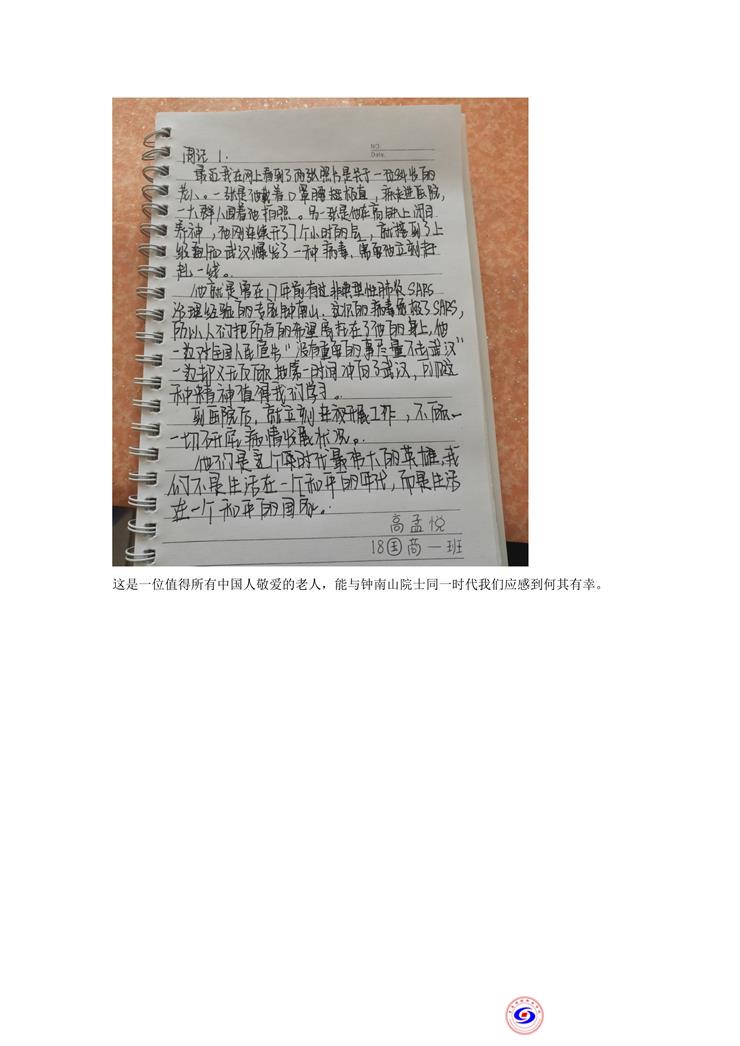 NO.
Date.
周记 1.
最近我在网上看到了两张照片是关于一位84岁的
老人。一张是他戴着口罩腰挺板直，奔走进医院，
一大群人围着他拍照。另一张是他在高铁上闭目
养神，他刚连续开了7个小时的会，就接到了上
级通知武汉爆发了一种病毒，需要他立刻赶
赴一线。
他就是曾在17年前有过非典型性肺炎SARS
治理经验的专家钟南山。这次的病毒SARS，
所以人们把所有的希望寄托在了他的身上，他
一边对全国人民宣告“没有重要的事尽量不去武汉”
一边却义无反顾地第一时间冲向了武汉，
种精神值得我们学习。
到医院后，就立刻开展工作，不顾一
一切研究病情发展状况。
他们是这个时代最伟大的英雄，我
们不是生活在一个和平的年代，而是生活
在一个和平的国家。
高孟悦
18国商一班
这是一位值得所有中国人敬爱的老人，能与钟南山院士同一时代我们应感到何其有幸。